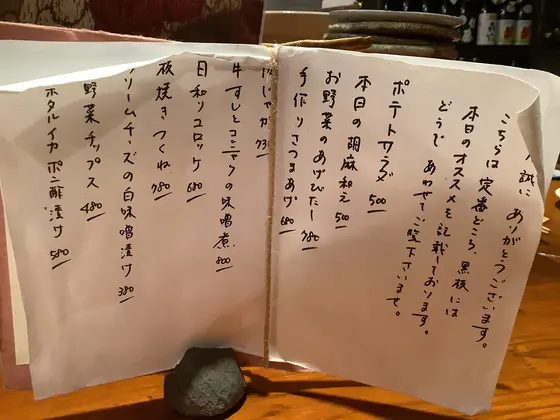 誠に ありがとうございます。
こちらは 定番どころ、黒板には
本日のオススメを記載しております。
どうぞ あわせてご覧下さいませ。
ポテトサラダ 500
本日の胡麻和え 500
お野菜のあげびたし 780
手作りさつまあげ 680
肉じゃが 730
牛すじとコンニャクの味噌煮 800
日和りコロッケ 680
板焼きつくね 780
クリームチーズの白味噌漬け 380
野菜チップス 480
ホタルイカ ポン酢漬け 580